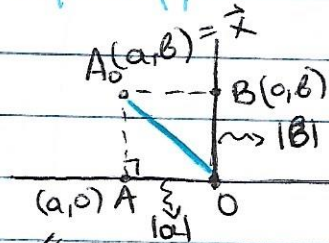 A₀(a,b) = x⃗
B(0,b)
|b|
(a,0) A
O
|a|